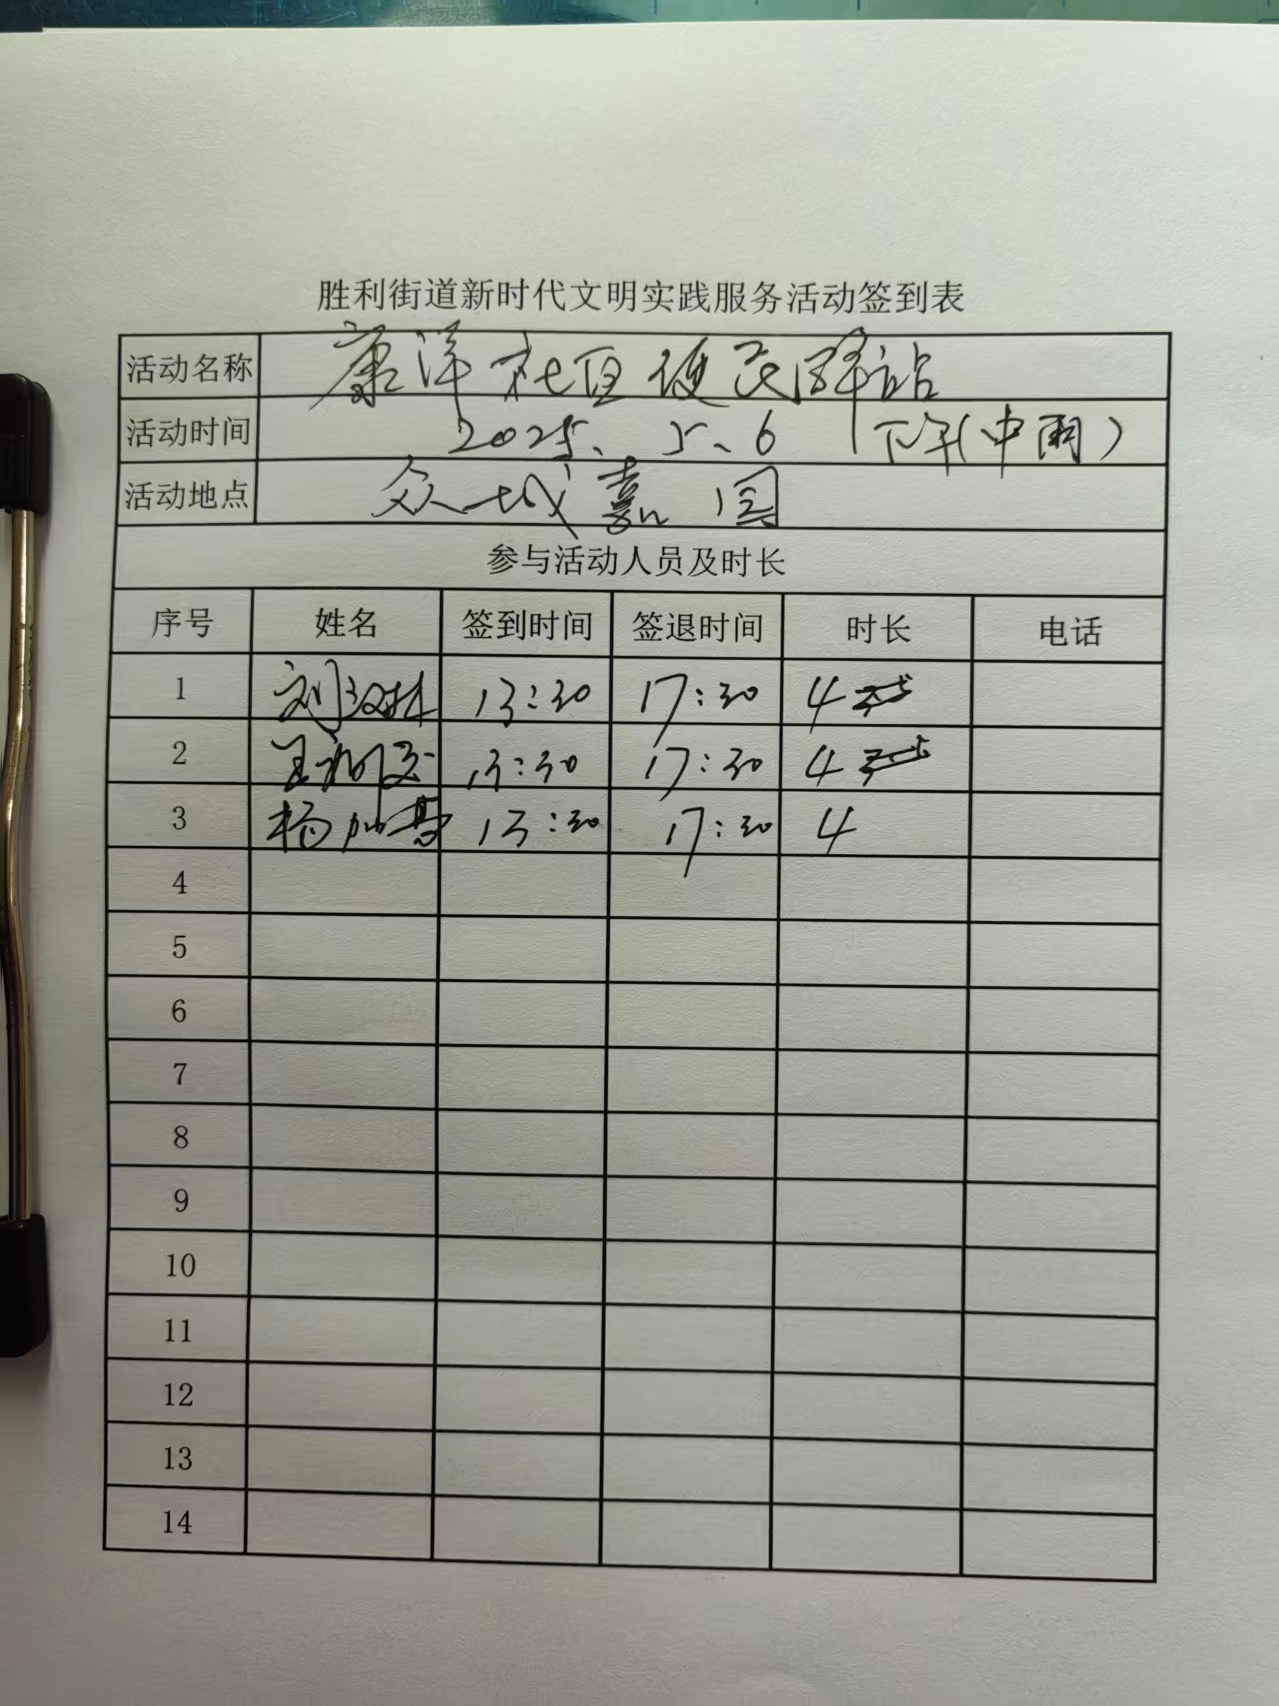 胜利街道新时代文明实践服务活动签到表
活动名称 康洋社区便民驿站
活动时间 2025、5、6 下午(中雨)
活动地点 众城嘉园
参与活动人员及时长
序号 姓名 签到时间 签退时间 时长 电话
1 刘 13:30 17:30 4
2 王 13:30 17:30 4
3 杨 13:30 17:30 4
4
5
6
7
8
9
10
11
12
13
14